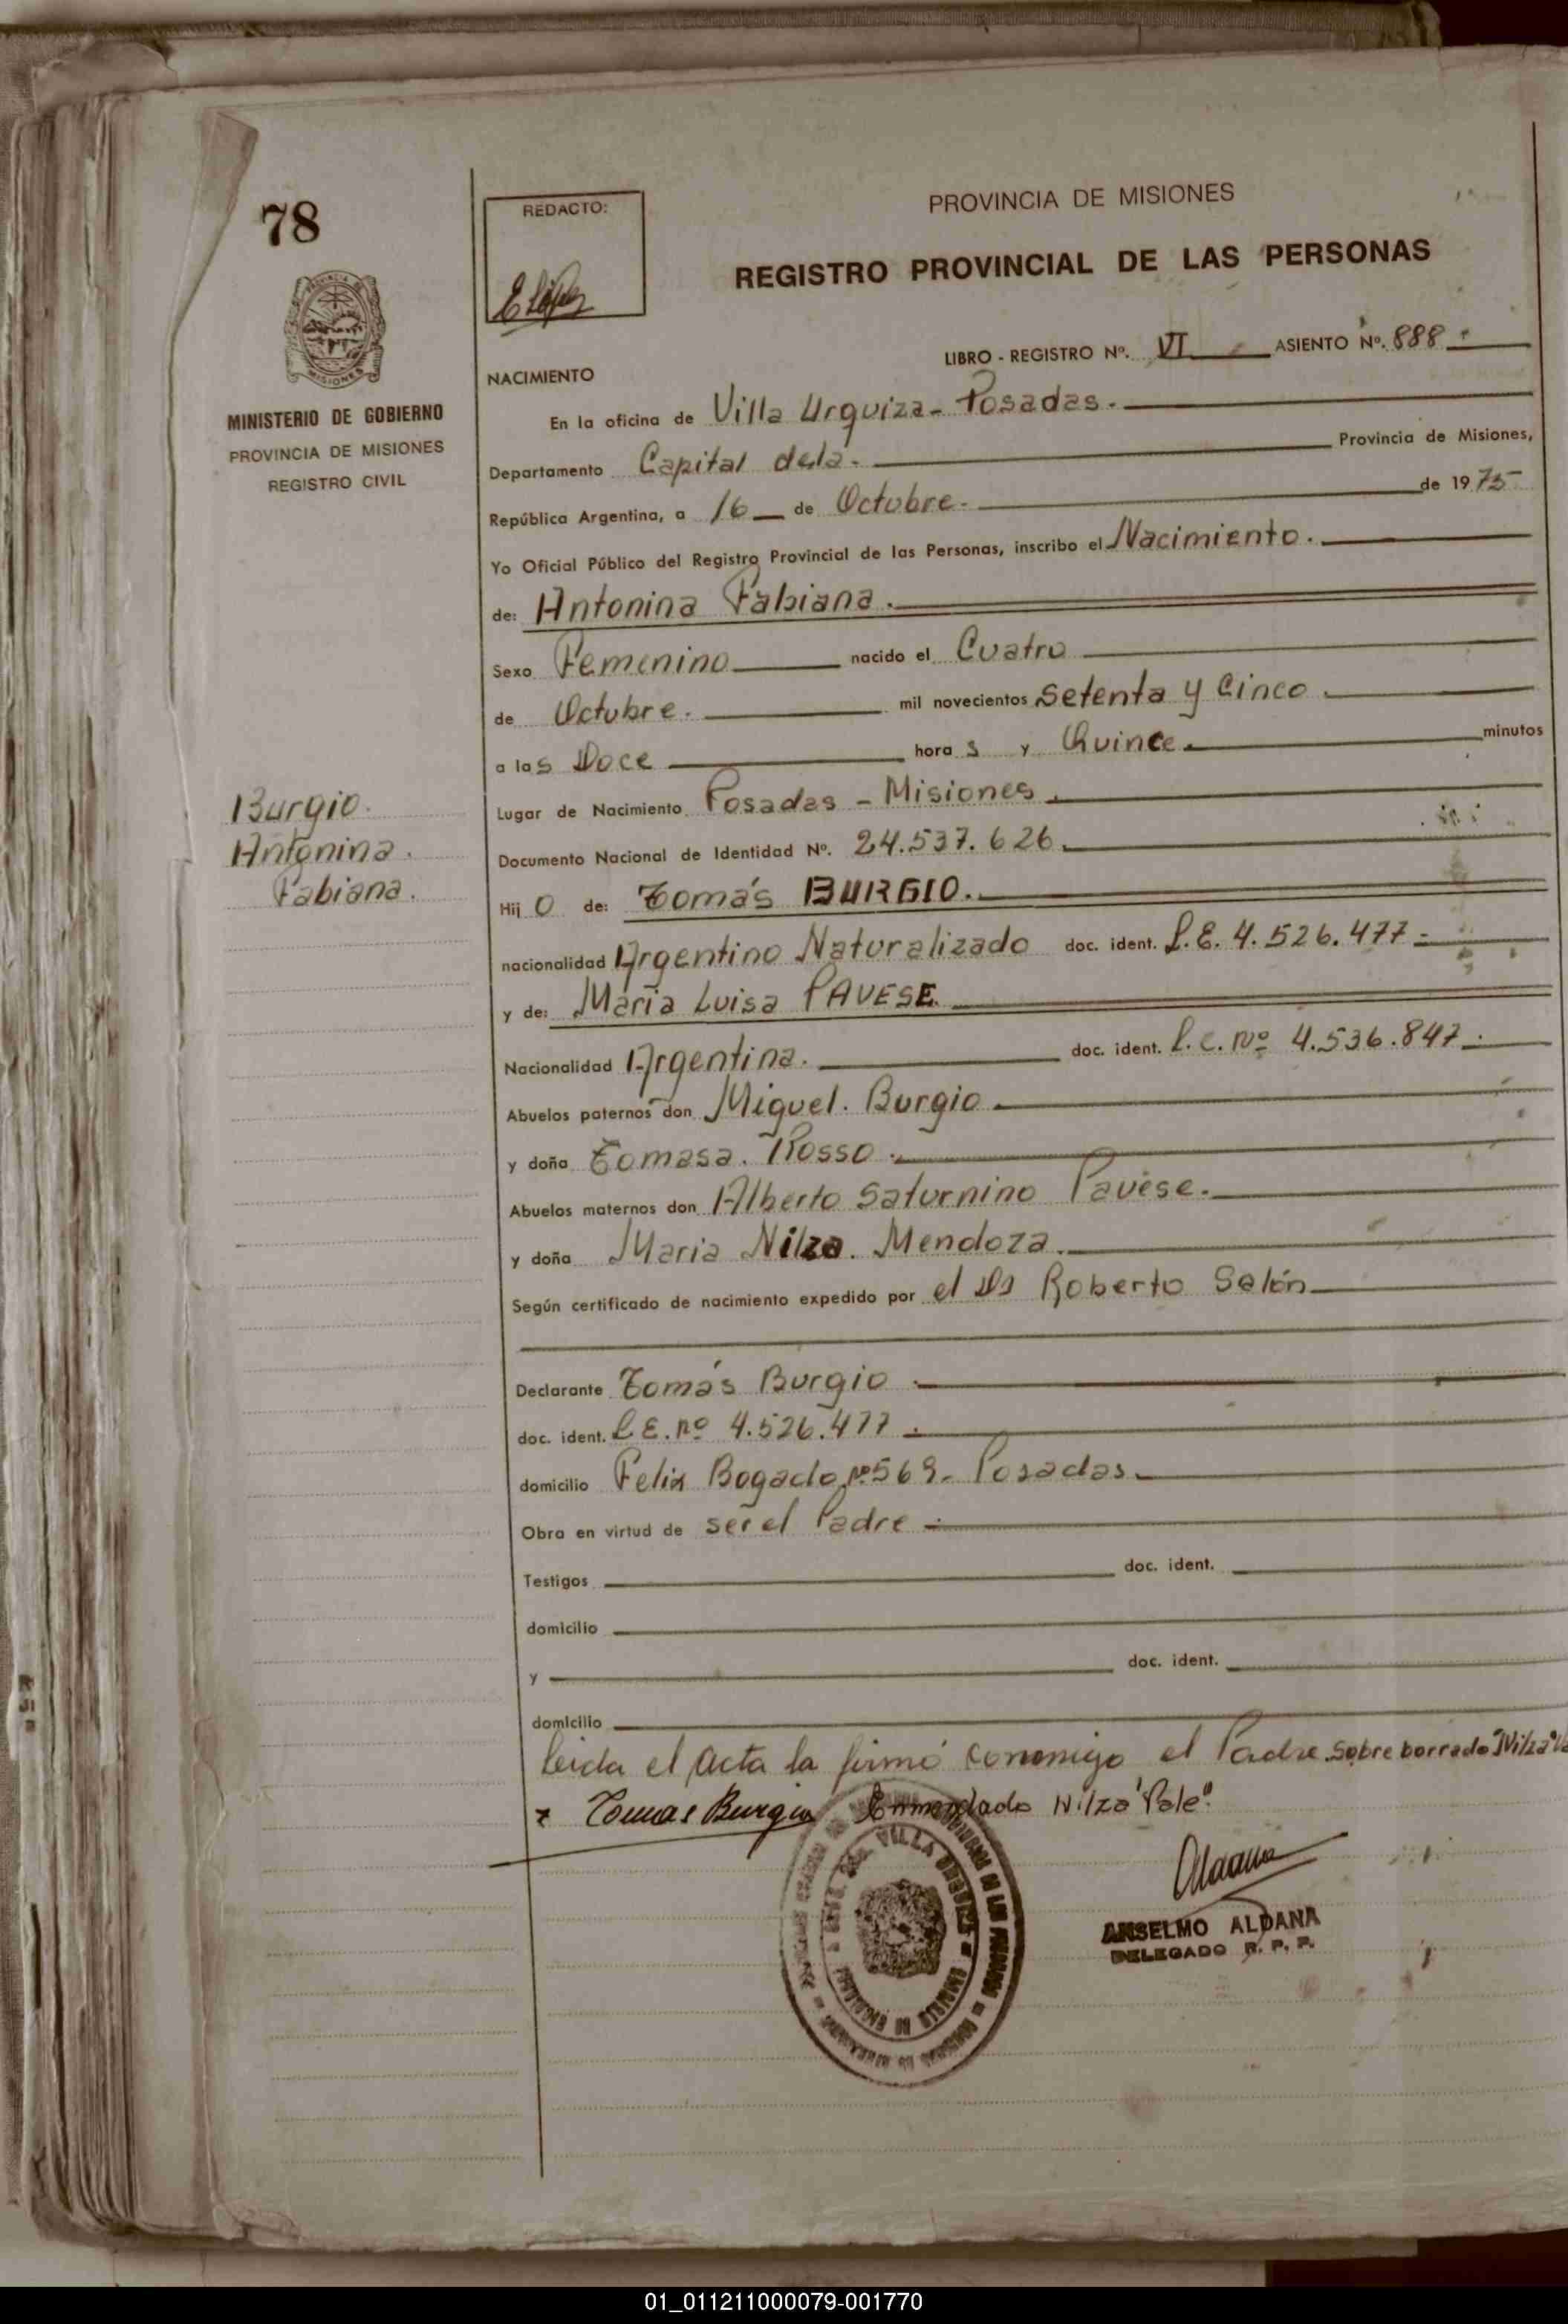 78
REDACTO:
PROVINCIA DE MISIONES
REGISTRO PROVINCIAL DE LAS PERSONAS
MISIONES
MINISTERIO DE GOBIERNO
PROVINCIA DE MISIONES
REGISTRO CIVIL
LIBRO - REGISTRO Nº. VI ASIENTO Nº. 888
NACIMIENTO
En la oficina de Villa Urquiza - Posadas.
Departamento Capital dela. Provincia de Misiones,
República Argentina, a 16 de Octubre. de 1975
Yo Oficial Público del Registro Provincial de las Personas, inscribo el Nacimiento.
de: Antonina Fabiana.
Sexo Femenino nacido el Cuatro
de Octubre. mil novecientos Setenta y Cinco.
a las Doce horas y Quince. minutos
Burgio.
Antonina.
Fabiana.
Lugar de Nacimiento Posadas - Misiones.
Documento Nacional de Identidad Nº. 24.537.626.
Hij O de: Tomás BURGIO.
nacionalidad Argentino Naturalizado doc. ident. L.E. 4.526.477
y de: Maria Luisa PAVESE.
Nacionalidad Argentina. doc. ident. L.C. Nº 4.536.847.
Abuelos paternos don Miguel. Burgio.
y doña Tomasa. Rosso.
Abuelos maternos don Alberto Saturnino Pavese.
y doña Maria Nilza. Mendoza.
Según certificado de nacimiento expedido por el Dr Roberto Salón
Declarante Tomás Burgio.
doc. ident. L.E. nº 4.526.477.
domicilio Felix Bogado nº 569. Posadas.
Obra en virtud de ser el Padre.
Testigos doc. ident.
domicilio
y doc. ident.
domicilio
leida el acta la firmó conmigo el Padre. Sobre borrado "Nilza"
Tomas Burgio Enmendado Nilza "Vale".
VILLA URQUIZA
ANSELMO ALDANA
DELEGADO R. P. P.
01_011211000079-001770